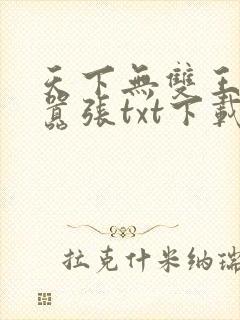 天下無雙王
囂張txt下載
拉克什米納瑞